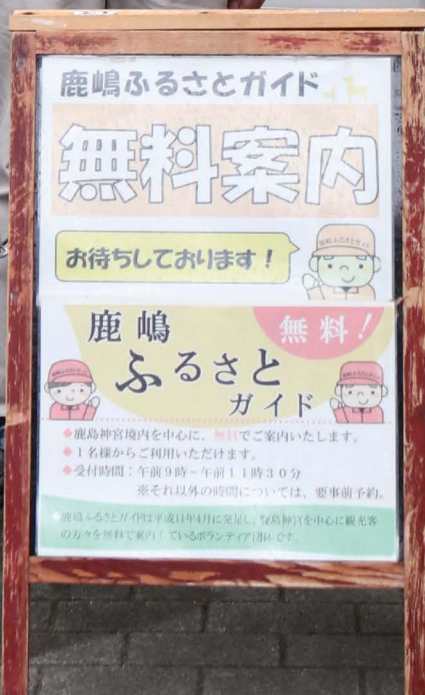 鹿嶋ふるさとガイド
無料案内
お待ちしております!
鹿嶋
無料!
ふるさと
ガイド
◆鹿島神宮境内を中心に、無料でご案内いたします。
◆1名様からご利用いただけます。
◆受付時間:午前9時~午前11時30分
※それ以外の時間については、要事前予約。
鹿嶋ふるさとガイドは平成11年4月に発足し、鹿島神宮を中心に観光客
の方々を無料で案内しているボランティア団体です。